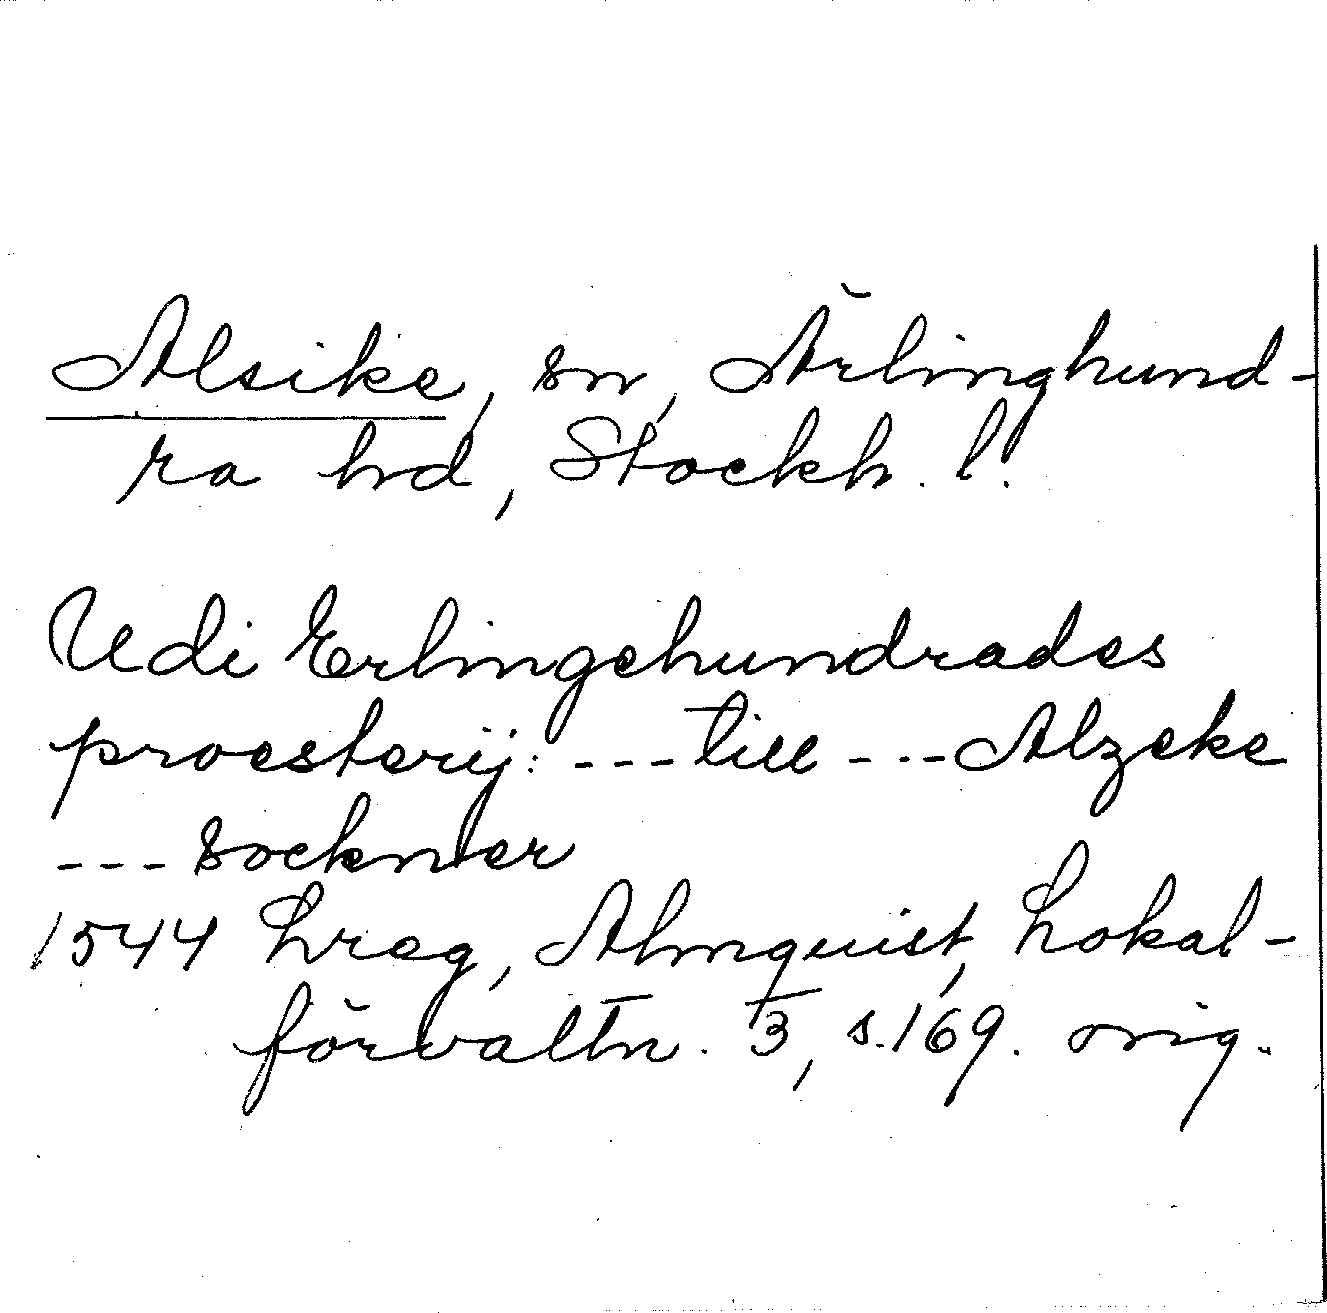 Alsike, sn, Ärlinghund-
ra hd, Stockh. l.
Udi Erlingehundrades
proesterij: --- till --- Alzeke
--- sockner
1544 Lreg, Almquist, Lokal-
förvaltn. 3, s. 169. orig.